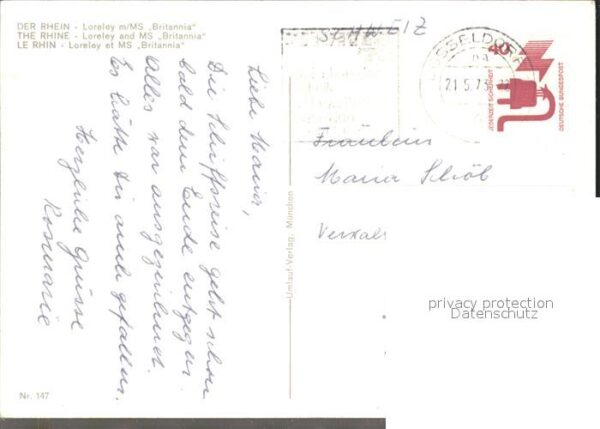 DER RHEIN - Loreley m/MS „Britannia“
THE RHINE - Loreley and MS „Britannia“
LE RHIN - Loreley et MS „Britannia“
Liebe Maria,
Die Schiffsreise geht schon
bald dem Ende entgegen.
Alles war ausgezeichnet.
Es hätte Dir auch gefallen.
Herzliche Grüsse
Rosmarie
Nr. 147
Umlauf-Verlag, München
SCHWEIZ
DÜSSELDORF
21.5.7
40
JEDERZEIT SICHERHEIT
DEUTSCHE BUNDESPOST
Fräulein
Maria Schöb
privacy protection
Datenschutz